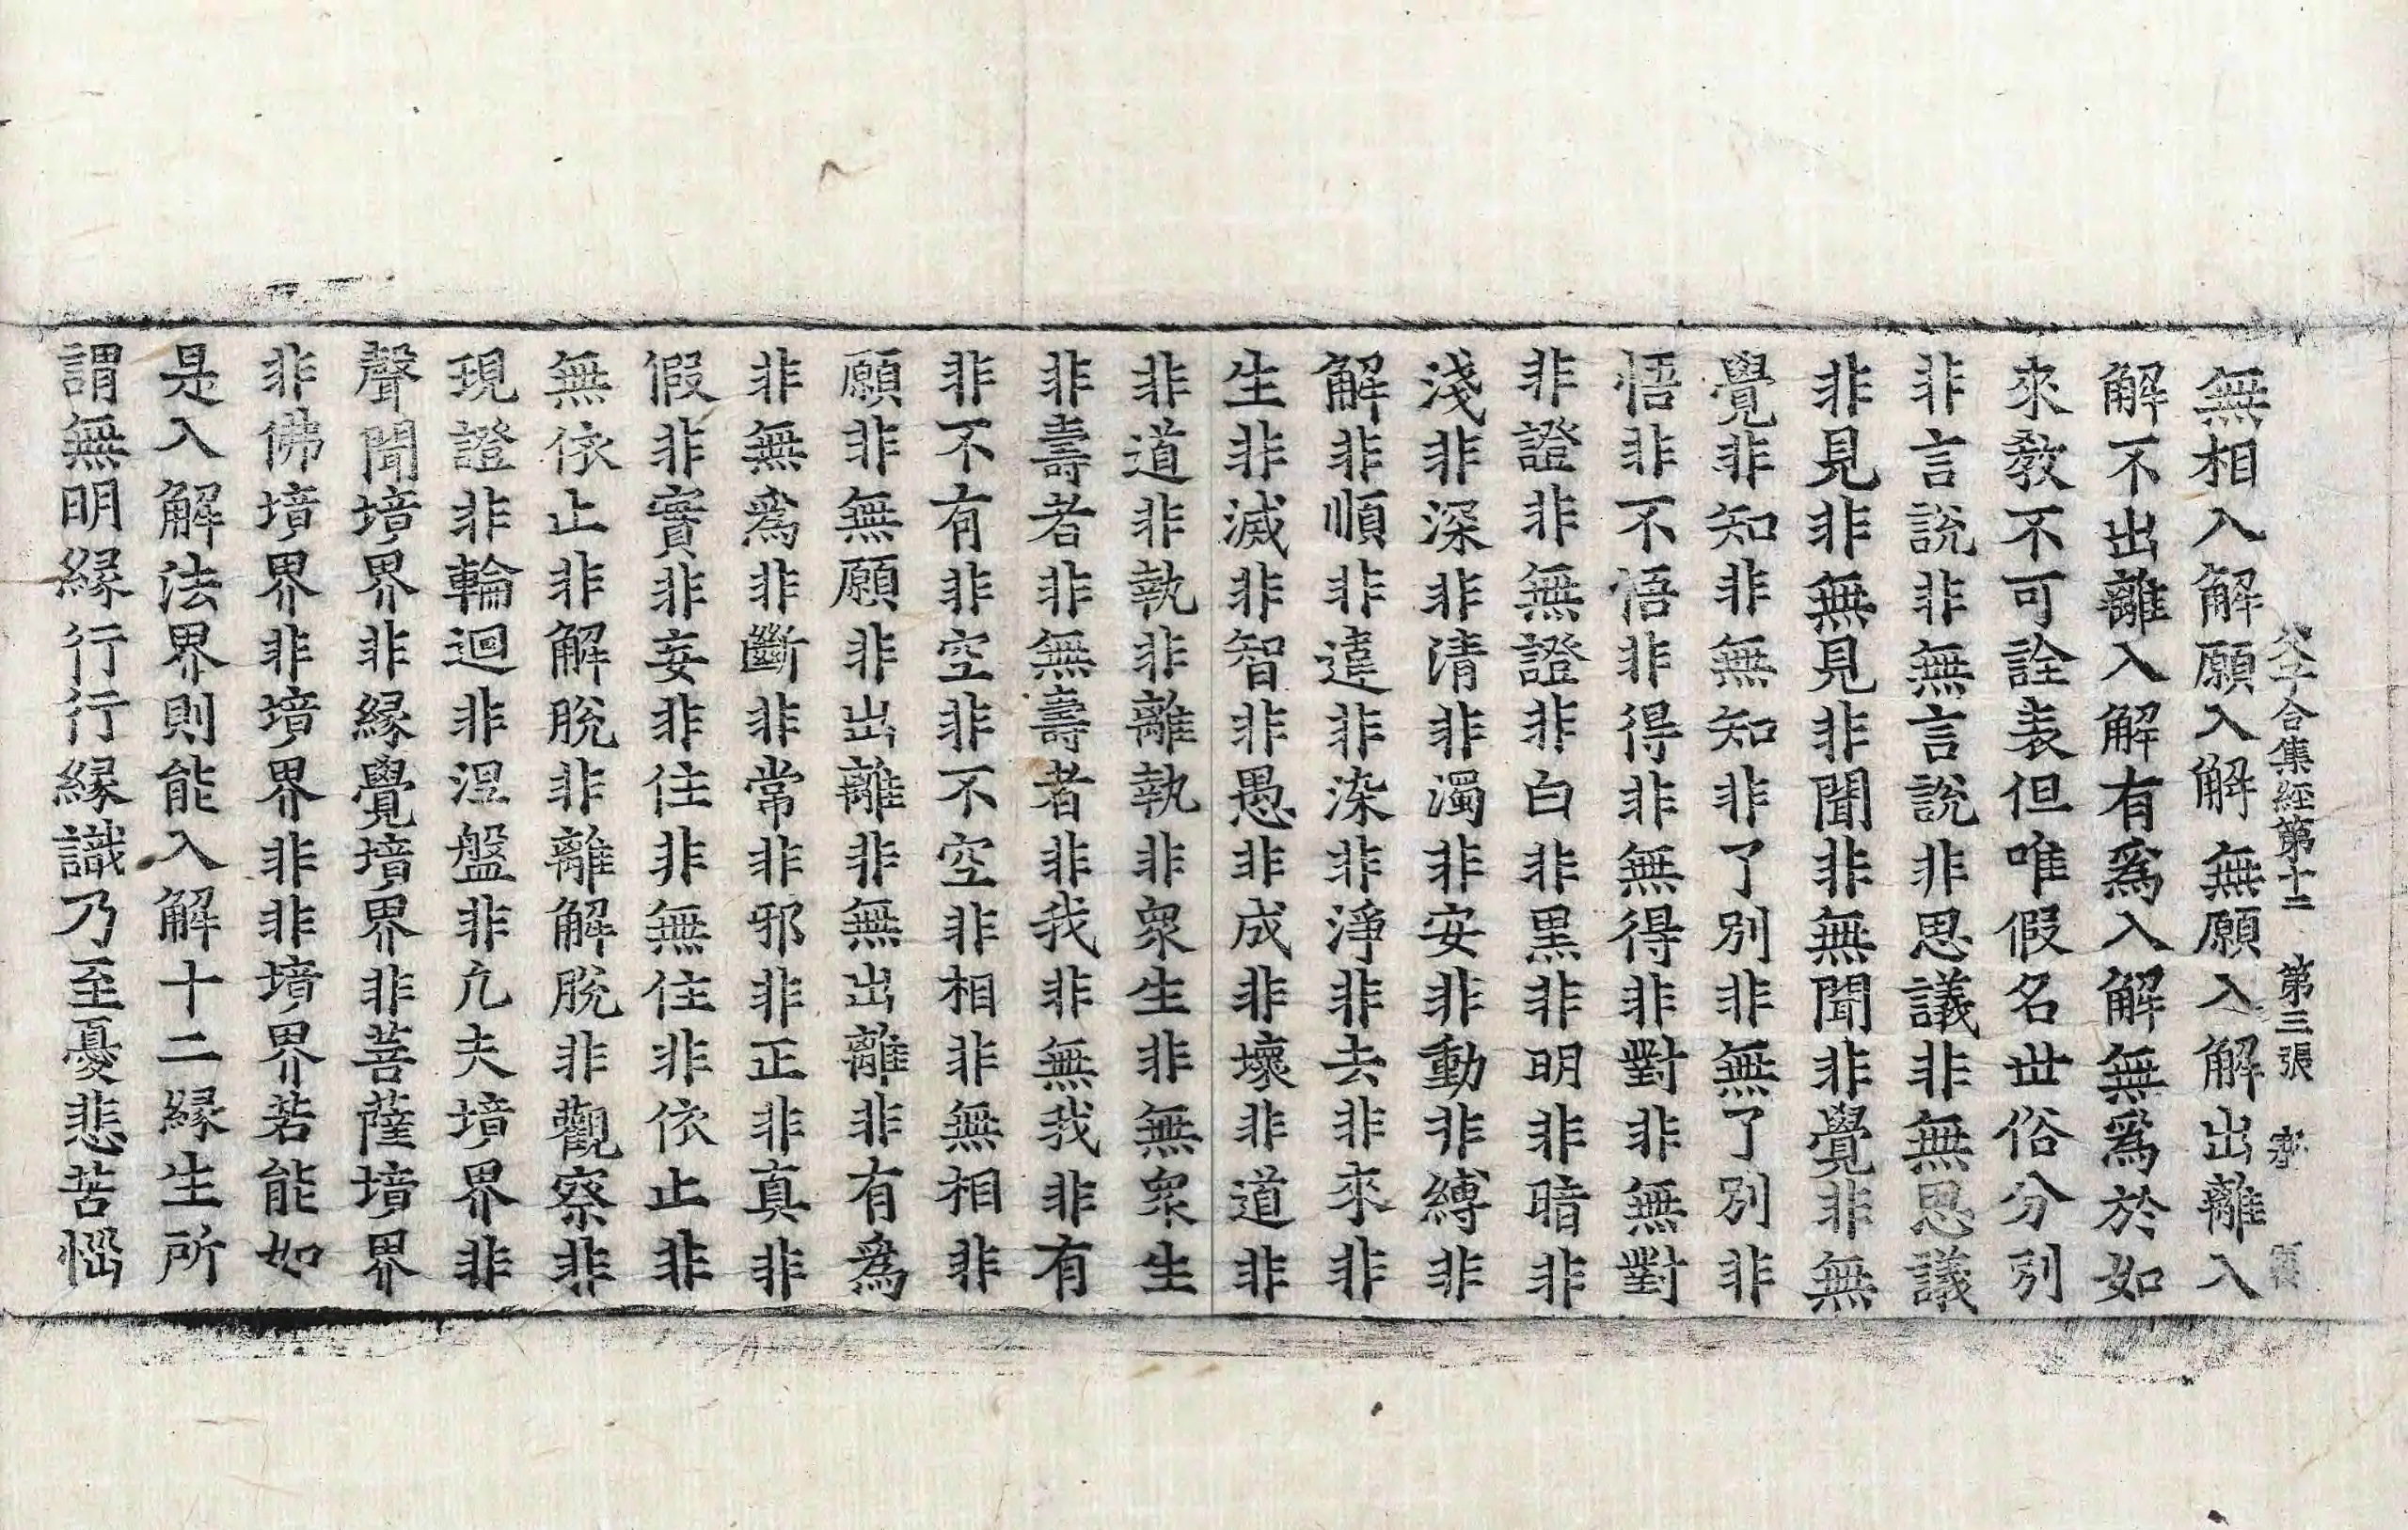 父子合集經第十二 第三張
無相入解願入解無願入解出離入
解不出離入解有爲入解無爲於如
來教不可詮表但唯假名世俗分別
非言說非無言說非思議非無思議
非見非無見非聞非無聞非覺非無
覺非知非無知非了別非無了別非
悟非不悟非得非無得非對非無對
非證非無證非白非黑非明非暗非
淺非深非清非濁非安非動非縛非
解非順非違非染非淨非去非來非
生非滅非智非愚非成非壞非道非
非道非執非離執非眾生非無眾生
非壽者非無壽者非我非無我非有
非不有非空非不空非相非無相非
願非無願非出離非無出離非有爲
非無爲非斷非常非邪非正非真非
假非實非妄非住非無住非依止非
無依止非解脫非離解脫非觀察非
現證非輪迴非涅盤非凢夫境界非
聲聞境界非緣覺境界非菩薩境界
非佛境界非境界非非境界若能如
是入解法界則能入解十二緣生所
謂無明緣行行緣識乃至憂悲苦惱